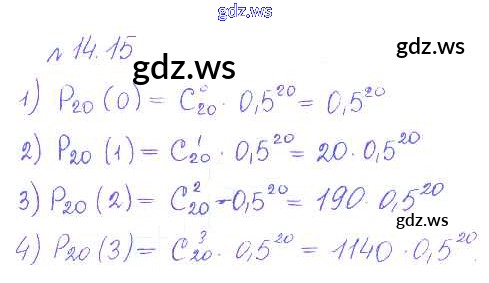 gdz.ws
№ 14.15
gdz.ws
gdz.ws
1) P₂₀(0) = C₂₀⁰ · 0,5²⁰ = 0,5²⁰
2) P₂₀(1) = C₂₀¹ · 0,5²⁰ = 20 · 0,5²⁰
3) P₂₀(2) = C₂₀² - 0,5²⁰ = 190 · 0,5²⁰
gdz.ws
4) P₂₀(3) = C₂₀³ · 0,5²⁰ = 1140 · 0,5²⁰.
gdz.ws